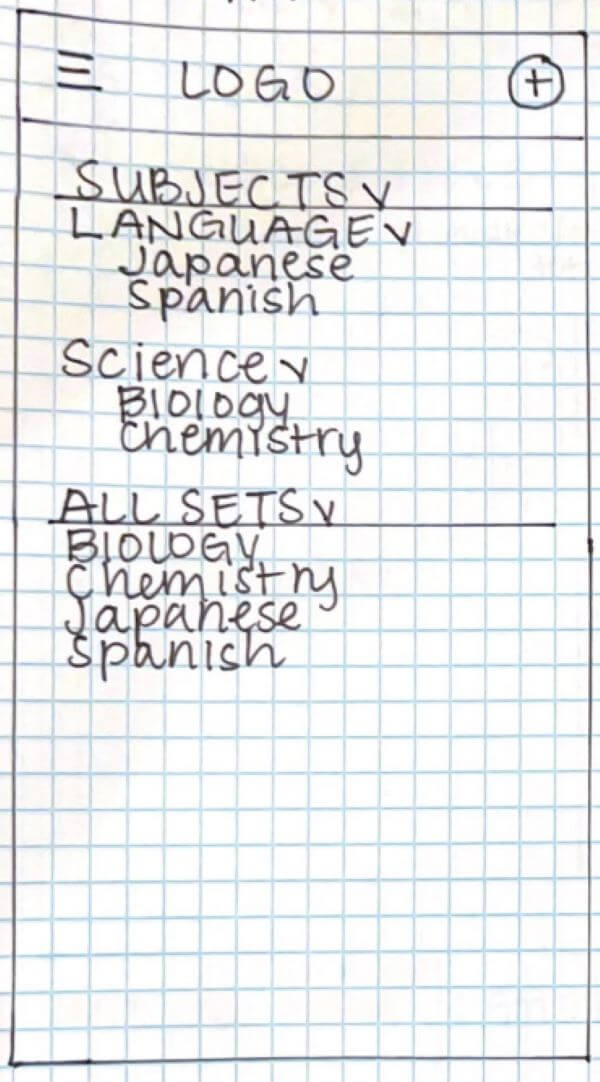 LOGO
SUBJECTS
LANGUAGE
Japanese
Spanish
Science
Biology
Chemistry
ALL SETS
BIOLOGY
Chemistry
Japanese
Spanish